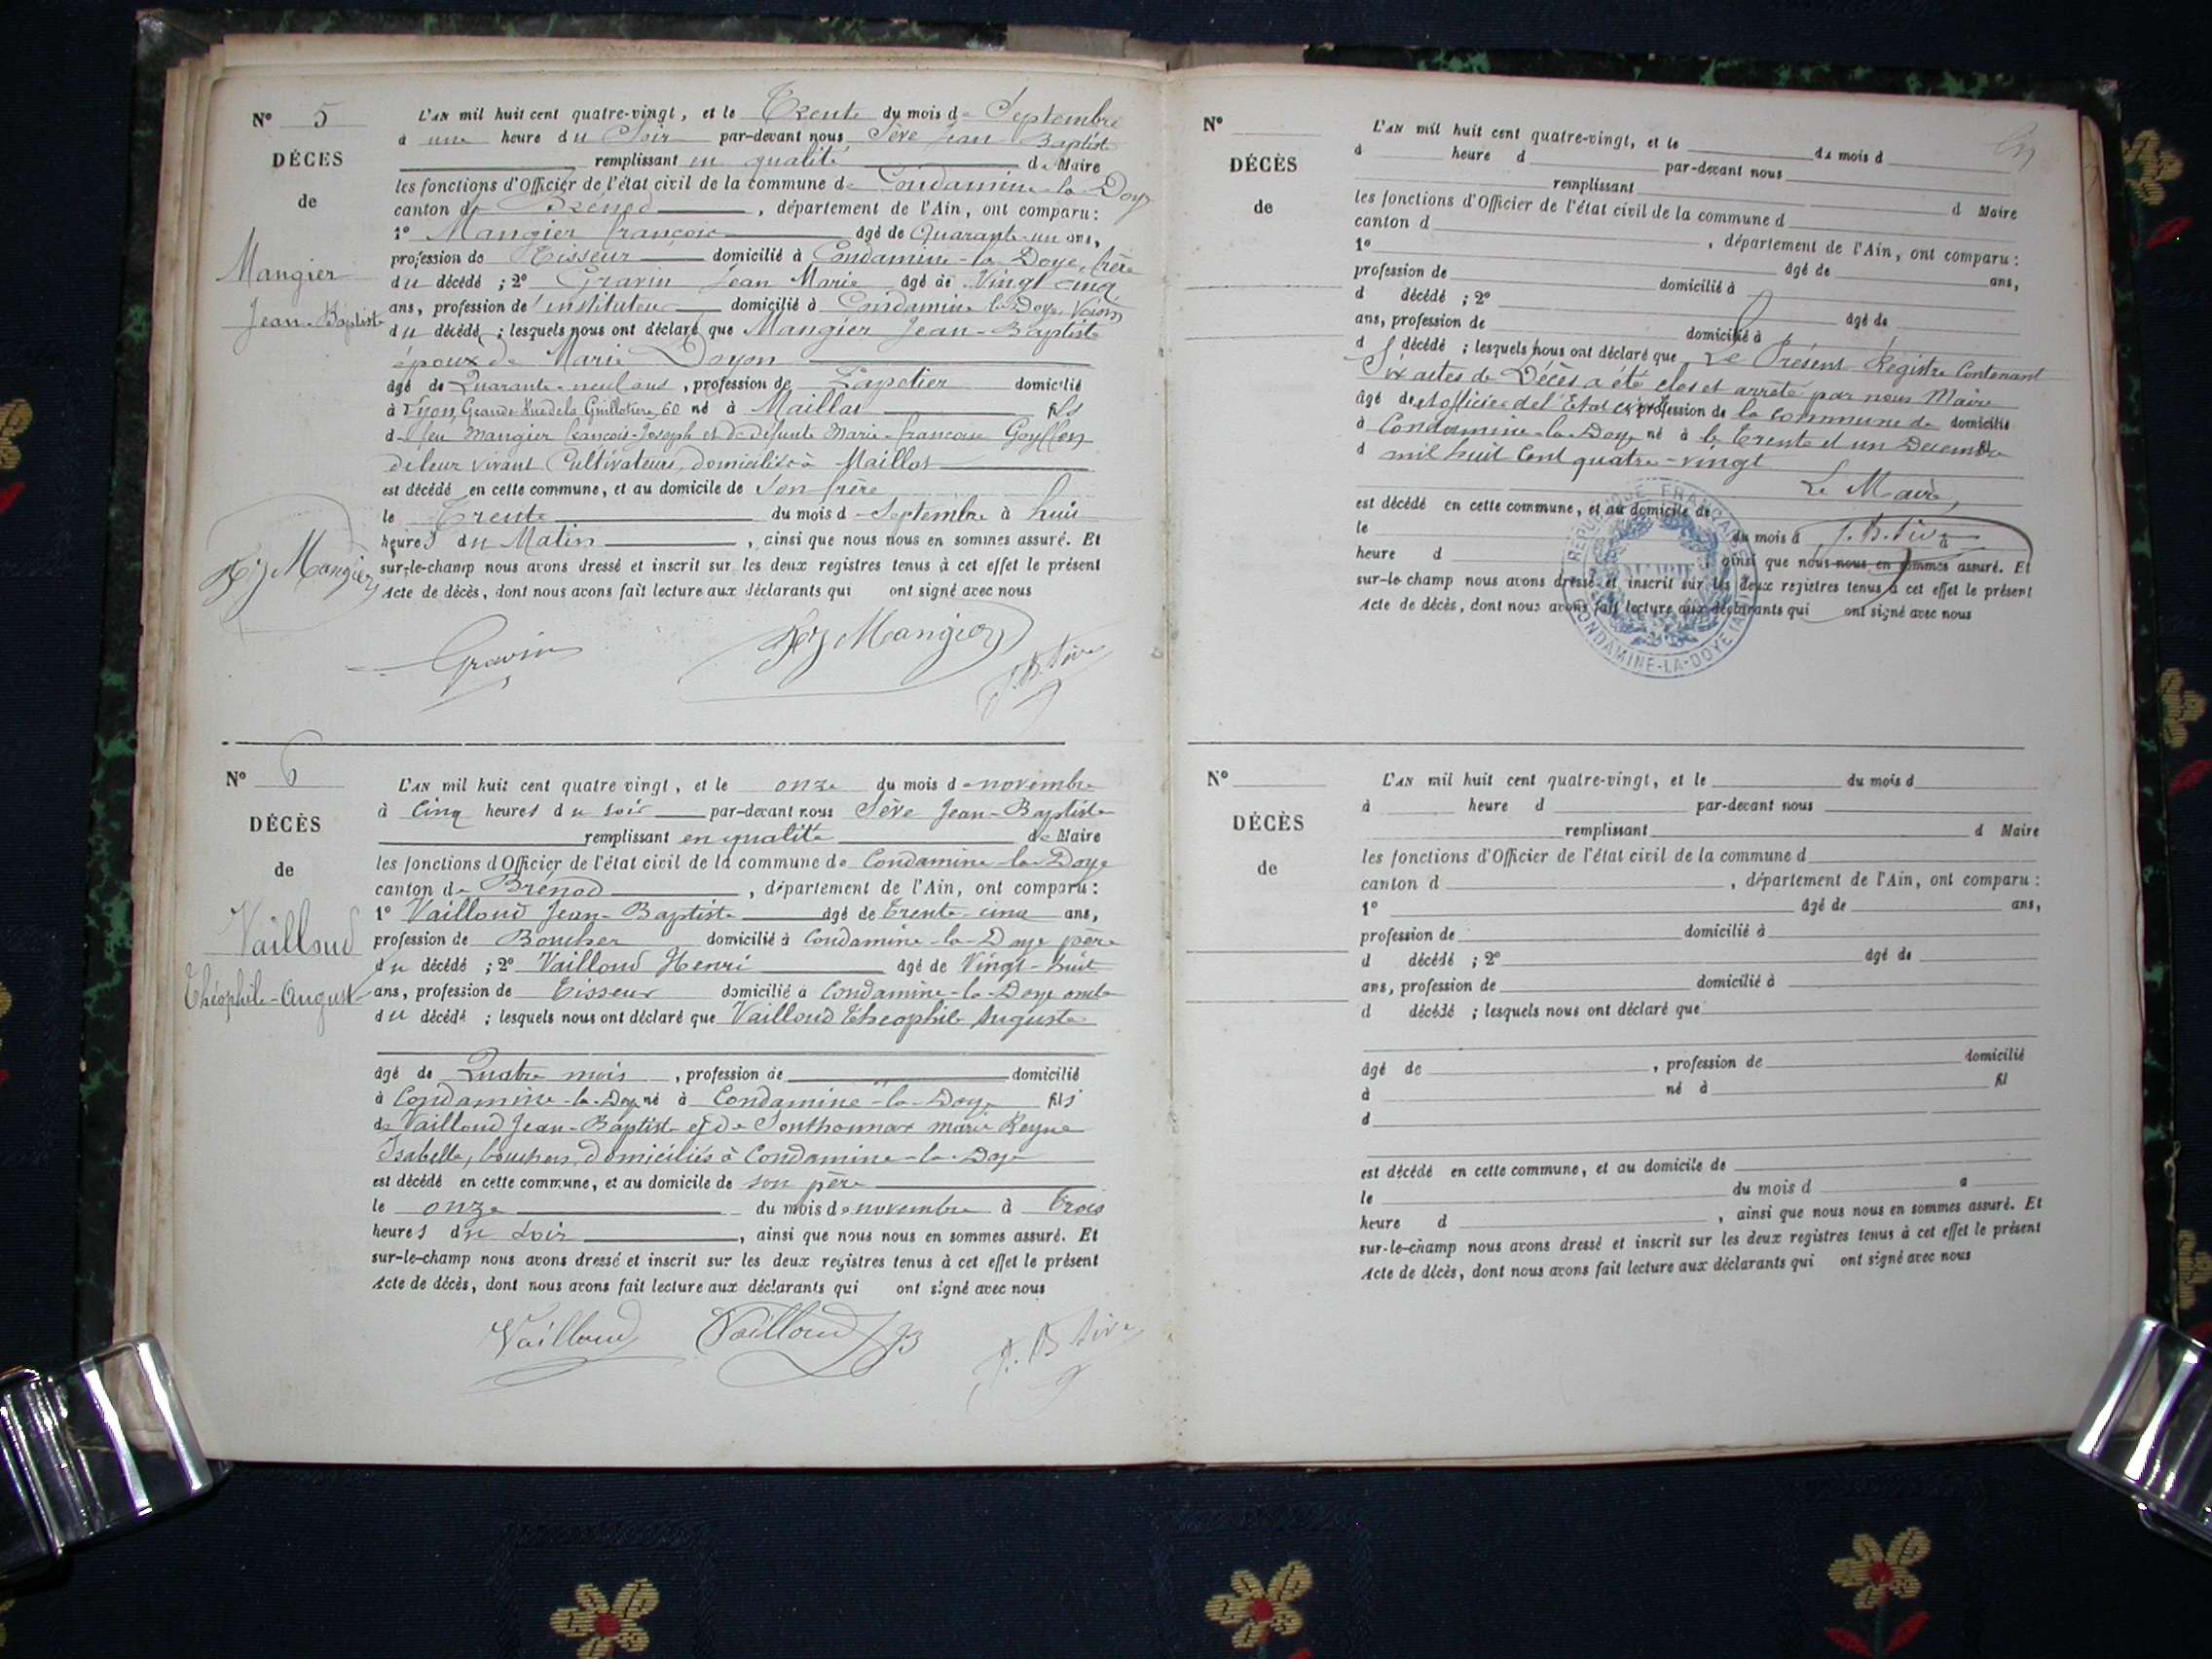 N° 5
DÉCES
de
Mangier
Jean-Baptiste
L'AN mil huit cent quatre-vingt, et le Trente du mois de Septembre
à une heure du Soir par-devant nous Sève Jean-Baptiste
remplissant en qualité de Maire
les fonctions d'Officier de l'état civil de la commune de Condamine-la-Doye
canton de Brénod, département de l'Ain, ont comparu:
1° Mangier françois âgé de Quarante-un ans,
profession de Tisseur domicilié à Condamine-la-Doye, frère
du décédé; 2° Gravin Jean Marie âgé de Vingt cinq
ans, profession de instituteur domicilié à Condamine-la-Doye, Voisin
du décédé; lesquels nous ont déclaré que Mangier Jean-Baptiste
époux de Marie Doyon
âgé de Quarante-neuf ans, profession de domicilié
à Lyon, Grande Rue de la Guillotière, 60 né à Maillat fils
de feu Mangier françois-Joseph et de défunte Marie-françoise
de leur vivant Cultivateurs, domiciliés à Maillat
est décédé en cette commune, et au domicile de son frère
le Trente du mois de Septembre à huit
heures du Matin, ainsi que nous nous en sommes assuré. Et
sur-le-champ nous avons dressé et inscrit sur les deux registres tenus à cet effet le présent
Acte de décès, dont nous avons fait lecture aux déclarants qui ont signé avec nous
Mangier
Gravin Mangier J. B. Sève
N° 6
DÉCÈS
de
Vailloud
Théophile-Auguste
L'AN mil huit cent quatre vingt, et le onze du mois de novembre
à Cinq heures du soir par-devant nous Sève Jean-Baptiste
remplissant en qualité de Maire
les fonctions d'Officier de l'état civil de la commune de Condamine-la-Doye
canton de Brénod, département de l'Ain, ont comparu:
1° Vailloud Jean-Baptiste âgé de trente-cinq ans,
profession de Boucher domicilié à Condamine-la-Doye père
du décédé; 2° Vailloud Henri âgé de Vingt-huit
ans, profession de Tisseur domicilié à Condamine-la-Doye oncle
du décédé; lesquels nous ont déclaré que Vailloud Théophile Auguste
âgé de Quatre mois, profession de domicilié
à Condamine-la-Doye né à Condamine-la-Doye fils
de Vailloud Jean-Baptiste et de Sonthonnax marie Reyne
Isabelle, bouchers, domiciliés à Condamine-la-Doye
est décédé en cette commune, et au domicile de son père
le onze du mois de novembre à trois
heures du soir, ainsi que nous nous en sommes assuré. Et
sur-le-champ nous avons dressé et inscrit sur les deux registres tenus à cet effet le présent
Acte de décès, dont nous avons fait lecture aux déclarants qui ont signé avec nous
Vailloud Vailloud JB J. B. Sève
N°
DÉCÈS
de
L'AN mil huit cent quatre-vingt, et le du mois d
à heure d par-devant nous
remplissant d Maire
les fonctions d'Officier de l'état civil de la commune d
canton d, département de l'Ain, ont comparu:
1° âgé de ans,
profession de domicilié à
d décédé; 2° âgé de
ans, profession de domicilié à
d décédé; lesquels nous ont déclaré que Le Présent Registre Contenant
Six actes de Décès a été clos et arrêté par nous Maire
âgé de et officier de l'Etat civil profession de la commune de domicilié
à Condamine-la-Doye né à le trente et un Decembre fil
d mil huit Cent quatre-vingt
Le Maire,
est décédé en cette commune, et au domicile de
le du mois d J. B. Sève à
heure d, ainsi que nous nous en sommes assuré. Et
sur-le-champ nous avons dressé et inscrit sur les deux registres tenus à cet effet le présent
Acte de décès, dont nous avons fait lecture aux déclarants qui ont signé avec nous
RÉPUBLIQUE FRANÇAISE
MAIRIE
CONDAMINE-LA-DOYE (AIN)
N°
DÉCÈS
de
L'AN mil huit cent quatre-vingt, et le du mois d
à heure d par-devant nous
remplissant d Maire
les fonctions d'Officier de l'état civil de la commune d
canton d, département de l'Ain, ont comparu:
1° âgé de ans,
profession de domicilié à
d décédé; 2° âgé de
ans, profession de domicilié à
d décédé; lesquels nous ont déclaré que
âgé de, profession de domicilié
à né à fil
d
est décédé en cette commune, et au domicile de
le du mois d à
heure d, ainsi que nous nous en sommes assuré. Et
sur-le-champ nous avons dressé et inscrit sur les deux registres tenus à cet effet le présent
Acte de décès, dont nous avons fait lecture aux déclarants qui ont signé avec nous